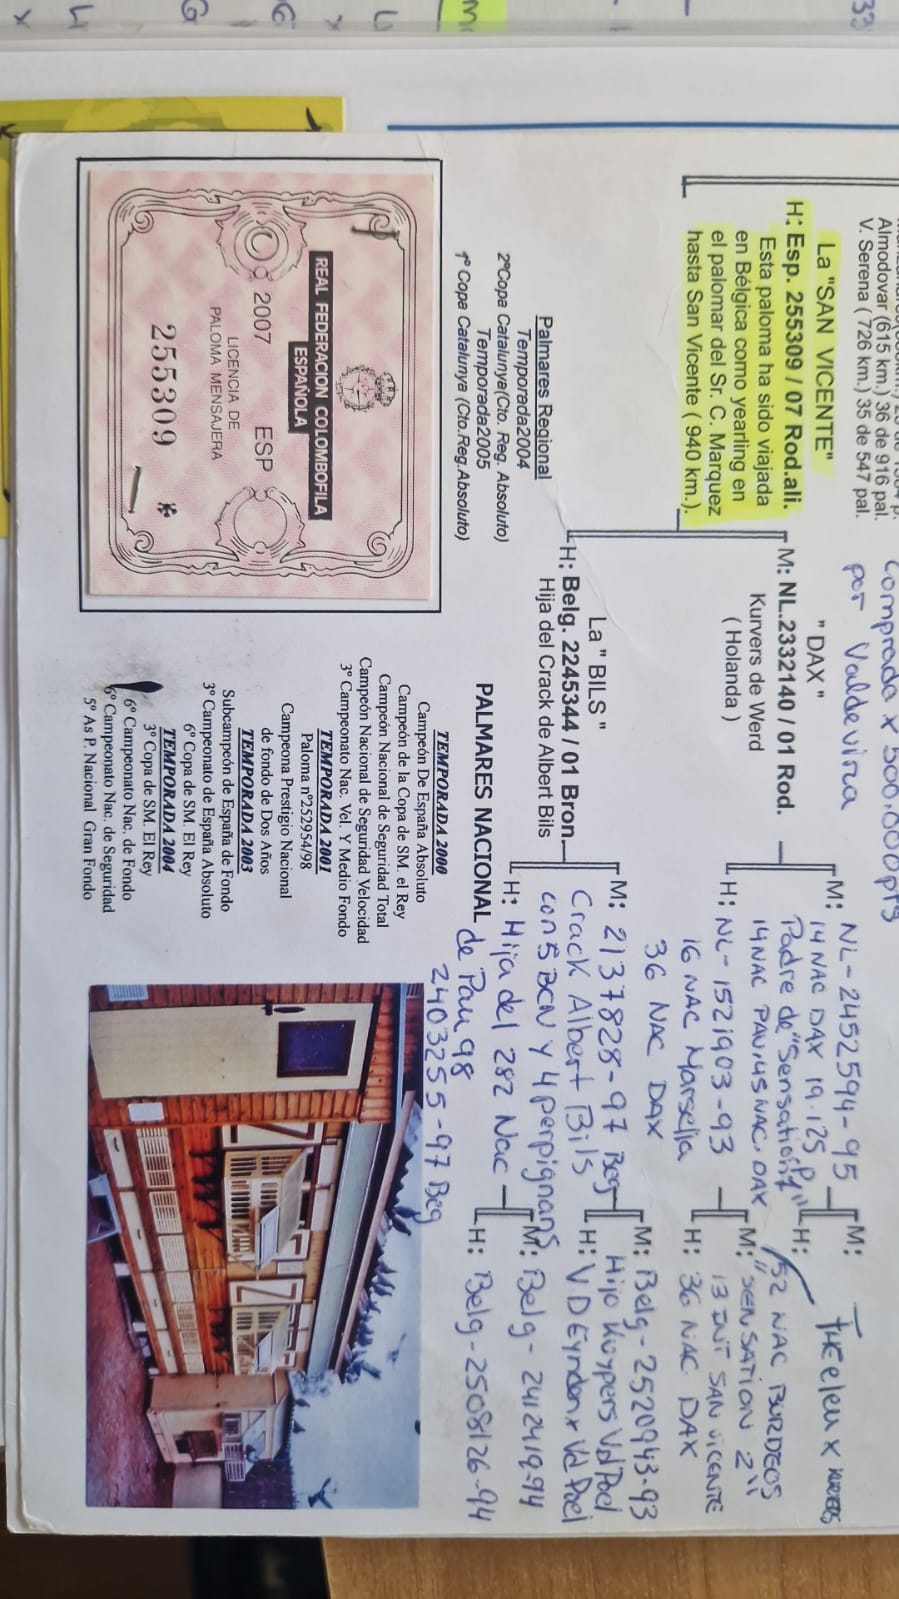 Almodovar (615 km.) 36 de 916 pal.
V. Serena ( 726 km.) 35 de 547 pal.
Comprada x 500.000pts
por Valdevira
La "SAN VICENTE"
H: Esp. 255309 / 07 Rod.ali.
Esta paloma ha sido viajada
en Bélgica como yearling en
el palomar del Sr. C. Marquez
hasta San Vicente ( 940 km.).
" DAX "
M: NL.2332140 / 01 Rod.
Kurvers de Werd
( Holanda )
M: NL-2452594-95
14 NAC DAX 19.125 p
Padre de "Sensation"
14 NAC PAU, 45 NAC. DAX
H: NL-1521903-93
16 NAC Marsella
36 NAC DAX
M: Theelen x Kurvers
H: 52 NAC BURDEOS
M: "SENSATION 2"
13 INT SAN VICENTE
H: 36 NAC DAX
La " BILS "
H: Belg. 2245344 / 01 Bron
Hija del Crack de Albert Bils
M: 2137828-97 Beg
Crack Albert Bils
con 5 BCN y 4 perpignans
H: Hija del 282 Nac
de Pau 98
2403255-97 Beg
M: Belg-2520943-93
Hijo Kuypers Vd Poel
H: V D Eynden x Vd Poel
M: Belg-2412419-94
H: Belg-2508126-94
Palmares Regional
Temporada2004
2ºCopa Catalunya(Cto. Reg. Absoluto)
Temporada2005
1º Copa Catalunya (Cto.Reg.Absoluto)
REAL FEDERACION COLOMBOFILA
ESPAÑOLA
2007 ESP
LICENCIA DE
PALOMA MENSAJERA
255309 *
PALMARES NACIONAL
TEMPORADA 2000
Campeón De España Absoluto
Campeón de la Copa de SM. el Rey
Campeón Nacional de Seguridad Total
Campeón Nacional de Seguridad Velocidad
3º Campeonato Nac. Vel. Y Medio Fondo
TEMPORADA 2001
Paloma nº252954/98
Campeona Prestigio Nacional
de fondo de Dos Años
TEMPORADA 2003
Subcampeón de España de Fondo
3º Campeonato de España Absoluto
6º Copa de SM. El Rey
TEMPORADA 2004
3º Copa de SM. El Rey
6º Campeonato Nac. de Fondo
6º Campeonato Nac. de Seguridad
5º As P. Nacional Gran Fondo